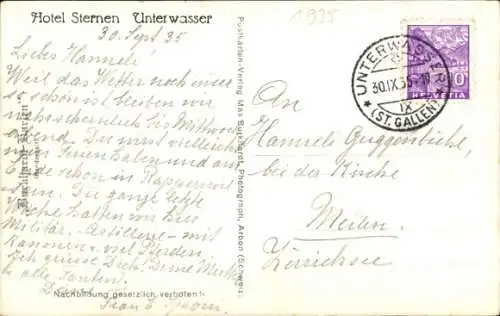 Hotel Sternen Unterwasser
1935
30. Sept 35
Liebes Hanneli!
Weil das Wetter noch immer
so schön ist bleiben wir
wahrscheinlich bis Mittwoch
abend. Du wirst vielleicht
Ferien haben und am
Ende schon in Rapperswil
sein. Die ganze letzte
Woche hatten wir hier
Militär. Artillerie - mit
Kanonen & viel Pferden.
Ich grüsse Dich, Deine Mutter
& alle Tanten.
Nachbildung gesetzlich verboten!
"Burkhardt-Karten"
Postkarten-Verlag Max Burkhardt, Photograph, Arbon (Schweiz)
UNTERWASSER
30.IX.35
IX
(ST. GALLEN)
10
HELVETIA
An
Hanneli Guggenbühl
bei der Kirche
Meilen.
Zürichsee